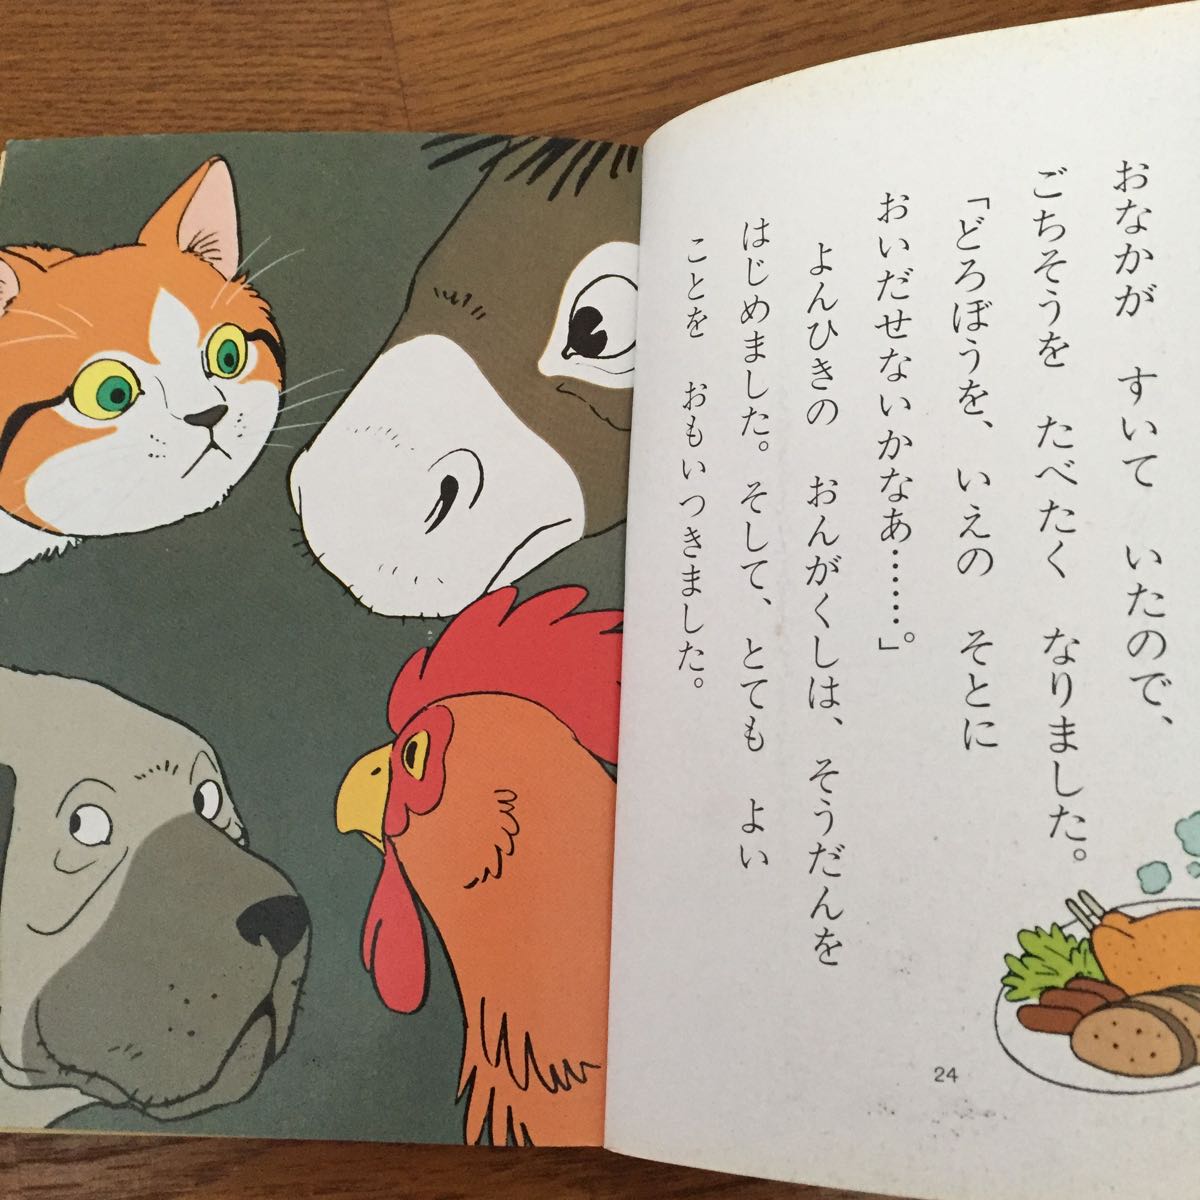 おなかが　すいて　いたので、
ごちそうを　たべたく　なりました。
「どろぼうを、　いえの　そとに
おいだせないかなあ……」。
よんひきの　おんがくしは、そうだんを
はじめました。そして、とても　よい
ことを　おもいつきました。
24